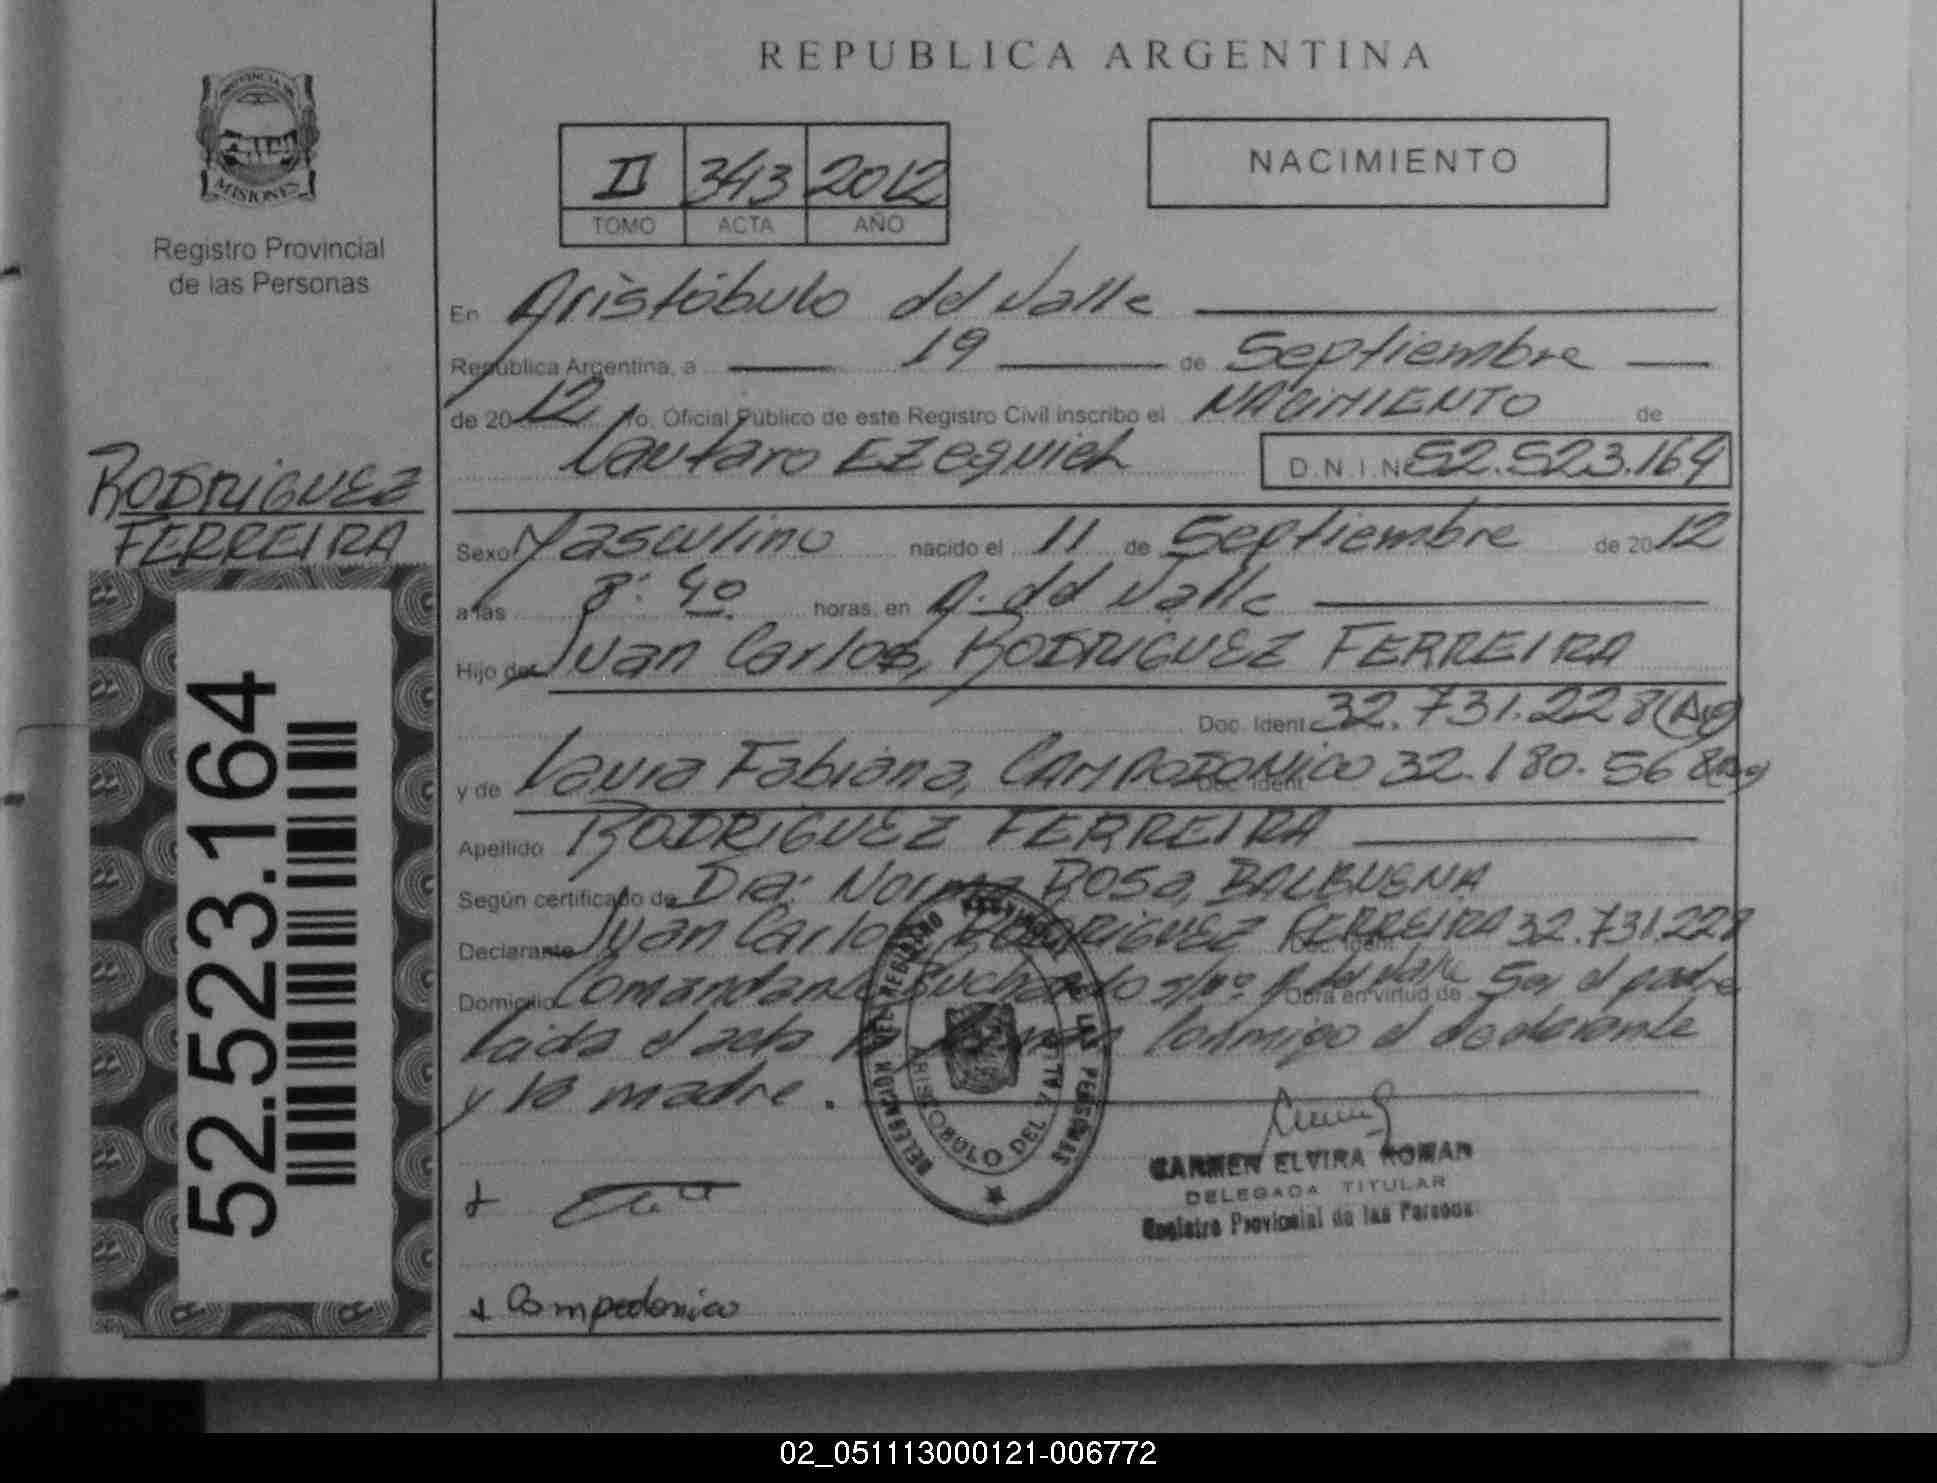 REPUBLICA ARGENTINA
PROVINCIA DE
MISIONES
Registro Provincial
de las Personas
II 343 2012
TOMO ACTA AÑO
NACIMIENTO
En Aristóbulo del Valle
República Argentina, a 19 de Septiembre
de 2012 Yo, Oficial Público de este Registro Civil inscribo el NACIMIENTO de
Lautaro Ezequiel D.N.I.Nº 52.523.164
RODRIGUEZ
FERREIRA
Sexo Masculino nacido el 11 de Septiembre de 2012
a las 8:40 horas, en A. del Valle
Hijo de Juan Carlos, RODRIGUEZ FERREIRA
Doc. Ident. 32.731.228 (Arg)
y de Laura Fabiana, CAMPODONICO Doc. Ident. 32.180.568 (Arg)
Apellido RODRIGUEZ FERREIRA
Según certificado de Dra: Norma Rosa, BALBUENA
Declarante Juan Carlos RODRIGUEZ FERREIRA Doc. Ident. 32.731.228
Domicilio Comandante s/nº A. del Valle Obra en virtud de Ser el padre
Leida el acta la firman conmigo el declarante
y la madre.
DELEGACION DEL REGISTRO PROVINCIAL DE LAS PERSONAS
ARISTOBULO DEL VALLE
CARMEN ELVIRA ROMAN
DELEGADA TITULAR
Registro Provincial de las Personas
Campodonico
52.523.164
02_051113000121-006772